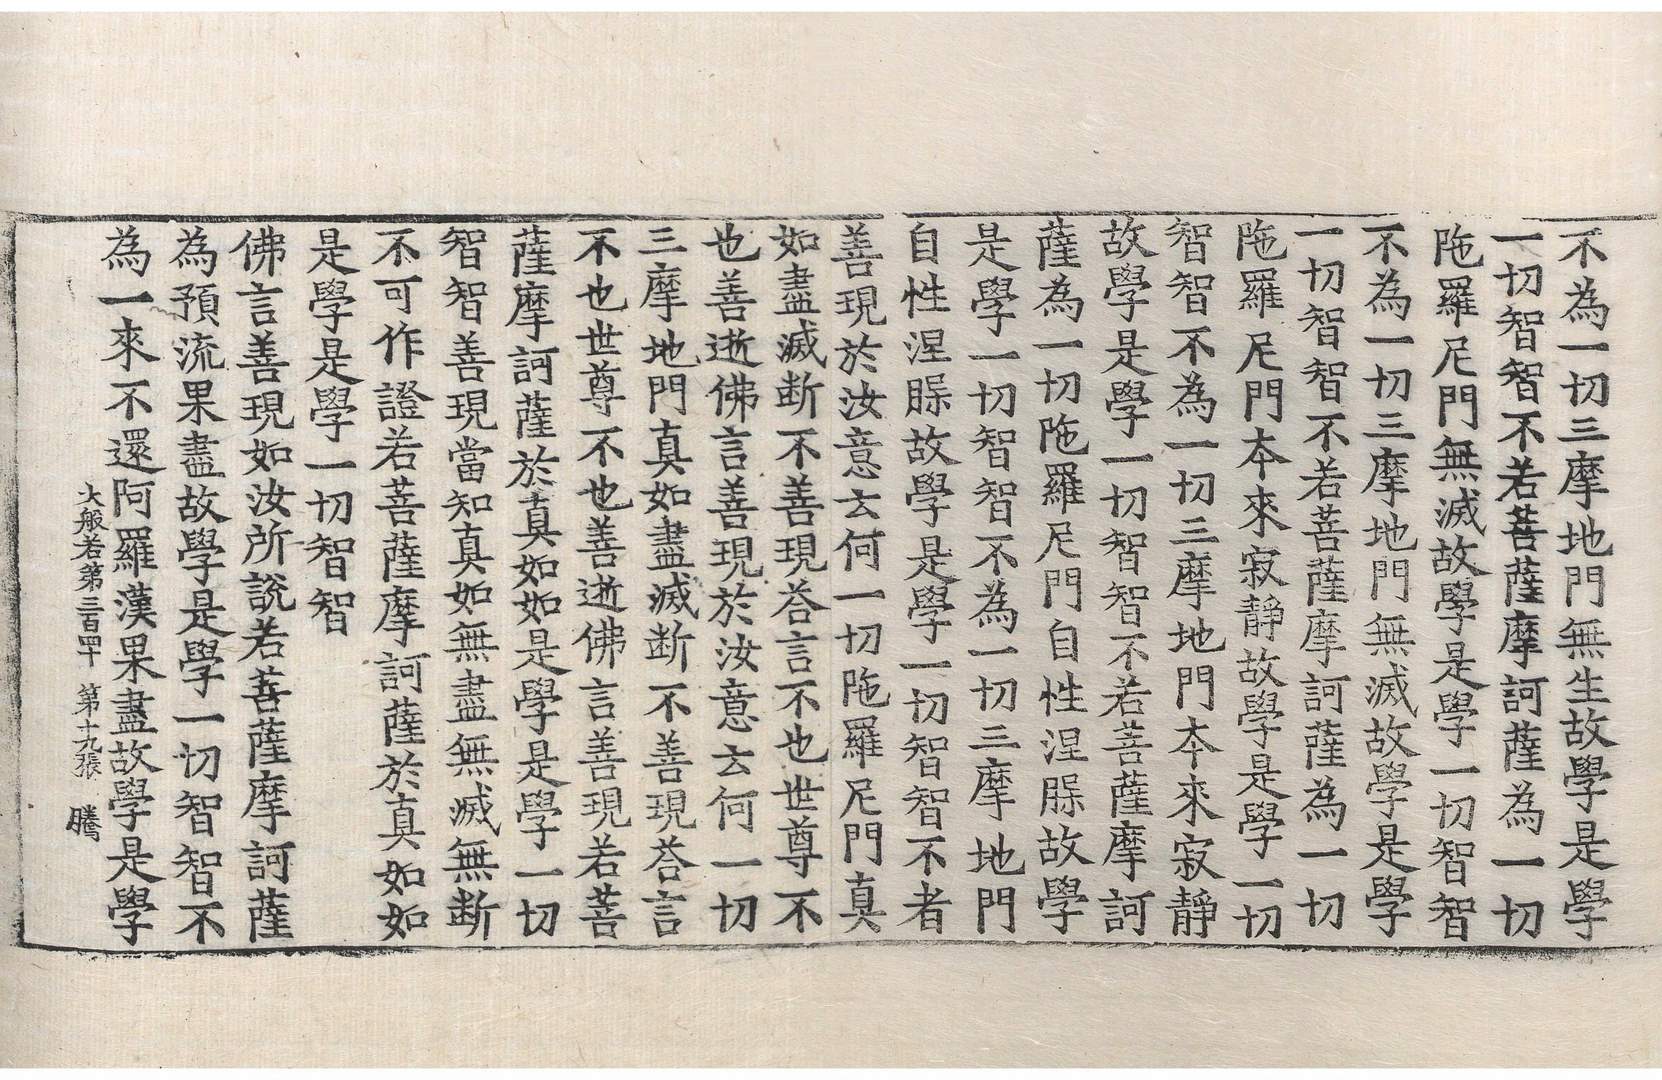 不為一切三摩地門無生故學是學
一切智智不若菩薩摩訶薩為一切
陁羅尼門無滅故學是學一切智智
不為一切三摩地門無滅故學是學
一切智智不若菩薩摩訶薩為一切
陁羅尼門夲來寂靜故學是學一切
智智不為一切三摩地門夲來寂靜
故學是學一切智智不若菩薩摩訶
薩為一切陁羅尼門自性涅槃故學
是學一切智智不為一切三摩地門
自性涅槃故學是學一切智智不者
善現於汝意云何一切陁羅尼門真
如盡滅断不善現荅言不也世尊不
也善逝佛言善現於汝意云何一切
三摩地門真如盡滅断不善現荅言
不也世尊不也善逝佛言善現若菩
薩摩訶薩於真如如是學是學一切
智智善現當知真如無盡無滅無断
不可作證若菩薩摩訶薩於真如如
是學是學一切智智
佛言善現如汝所說若菩薩摩訶薩
為預流果盡故學是學一切智智不
為一來不還阿羅漢果盡故學是學
大般若第三百四十 第十九張 騰